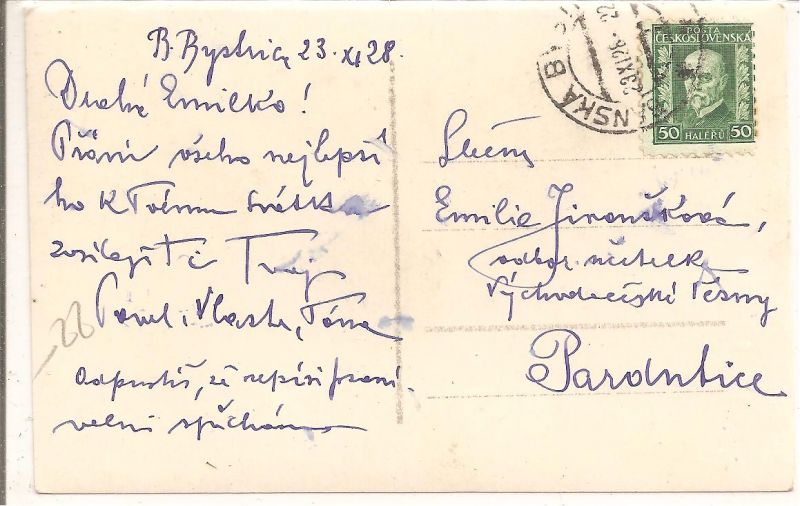 B. Bystrica 23. XI 28.
Drahá Emilko!
Přání všeho nejlepší
ho k Tvému svátku
zasílají Ti Tvoji
Pavel, Vlasta,
Odpustíš, že nepíši
velmi spěcháme
22
POŠTA
ČESKOSLOVENSKÁ
50 HALÉŘŮ 50
NSKA B
23 XI 28
Slečna
Emilie Jiroušková,
odbor. učitelka
Východočeské
Pardubice